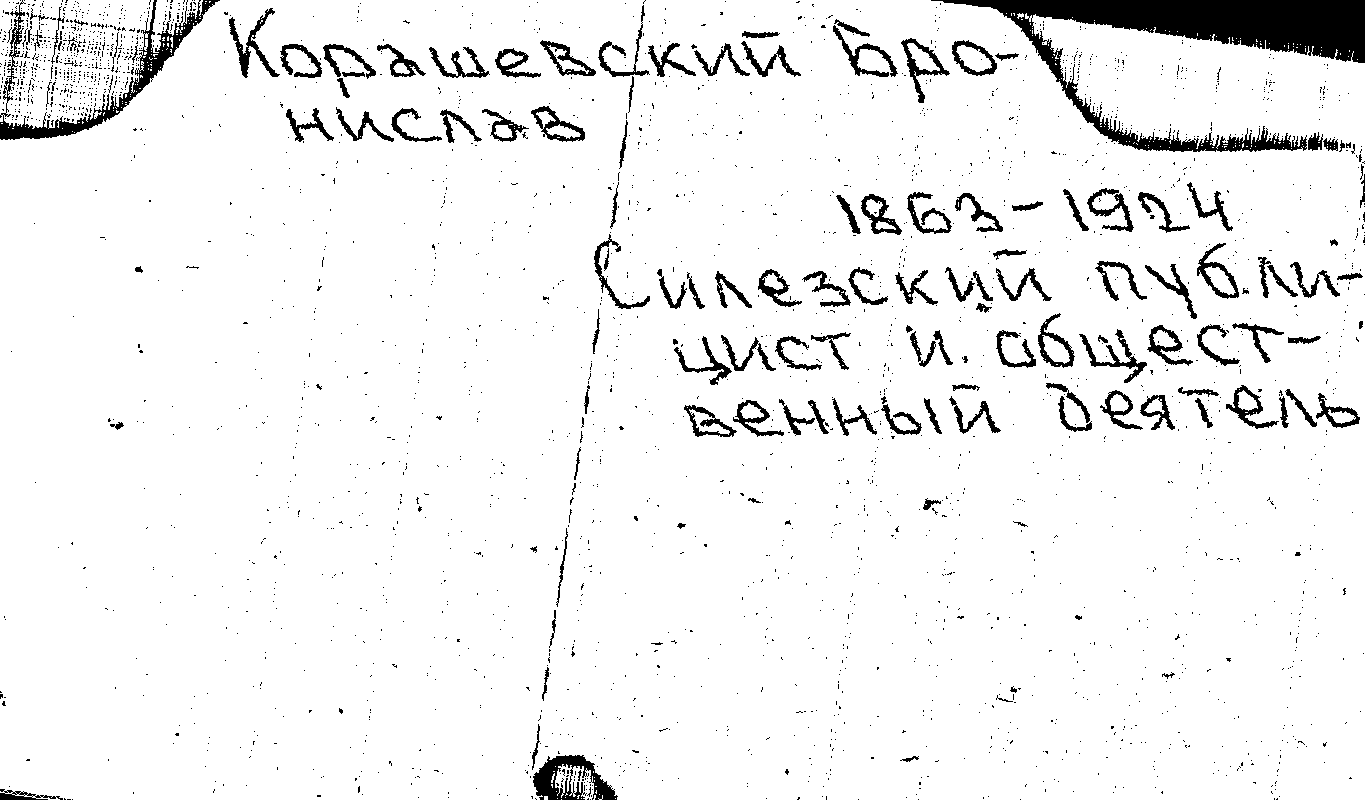 Корашевский Бро-
нислав
1863-1924
Силезский публи-
цист и общест-
венный деятель